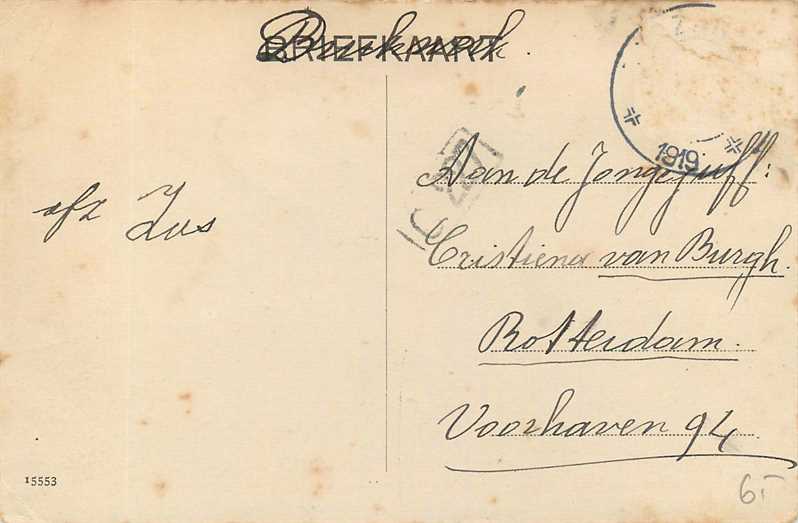 BRIEFKAART
Drukwerk.
1919
Aan de Jongejuff:
Cristiena van Burgh.
Rotterdam.
Voorhaven 94
afz Zus
15553
6,-